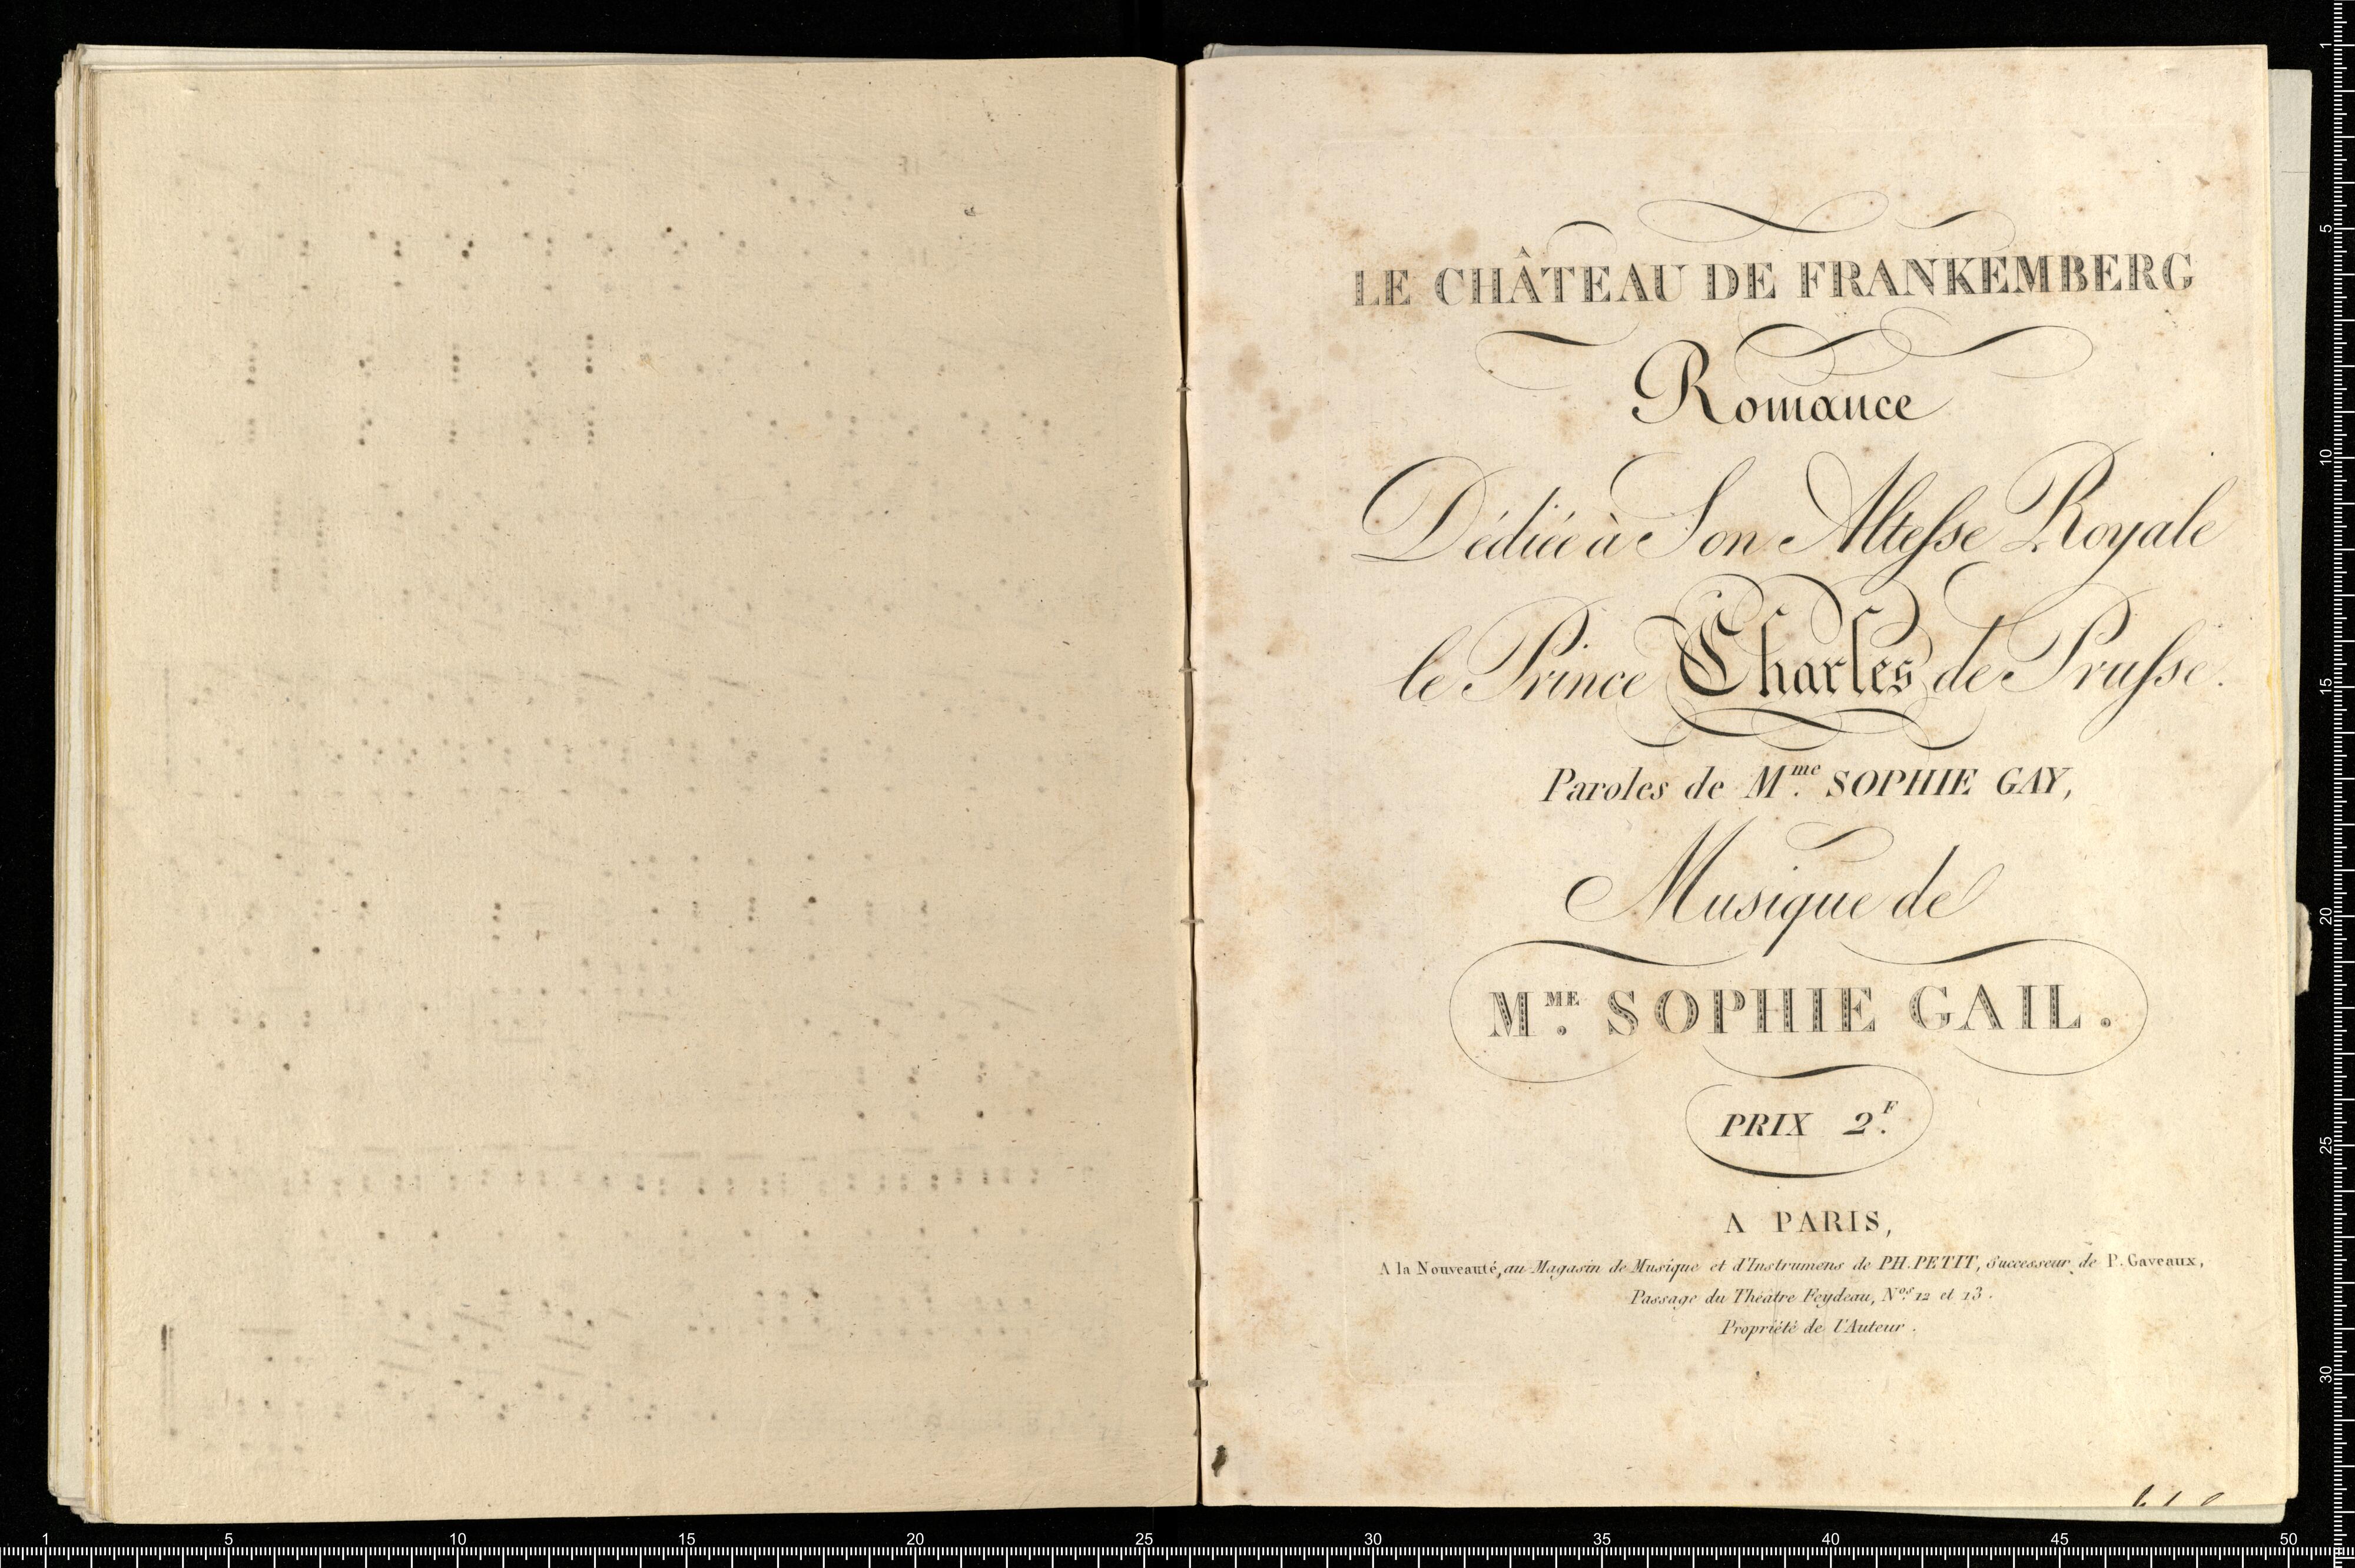 LE CHÂTEAU DE FRANKEMBERG
Romance
Dédiée à Son Altesse Royale
le Prince Charles de Prusse.
Paroles de Mme. SOPHIE GAY,
Musique de
MME. SOPHIE GAIL.
PRIX 2F.
A PARIS,
A la Nouveauté, au Magasin de Musique et d'Instrumens de PH. PETIT, Successeur de P. Gaveaux,
Passage du Théâtre Feydeau, Nos. 12 et 13.
Propriété de l'Auteur.
1 5 10 15 20 25 30 35 40 45 50
1
5
10
15
20
25
30